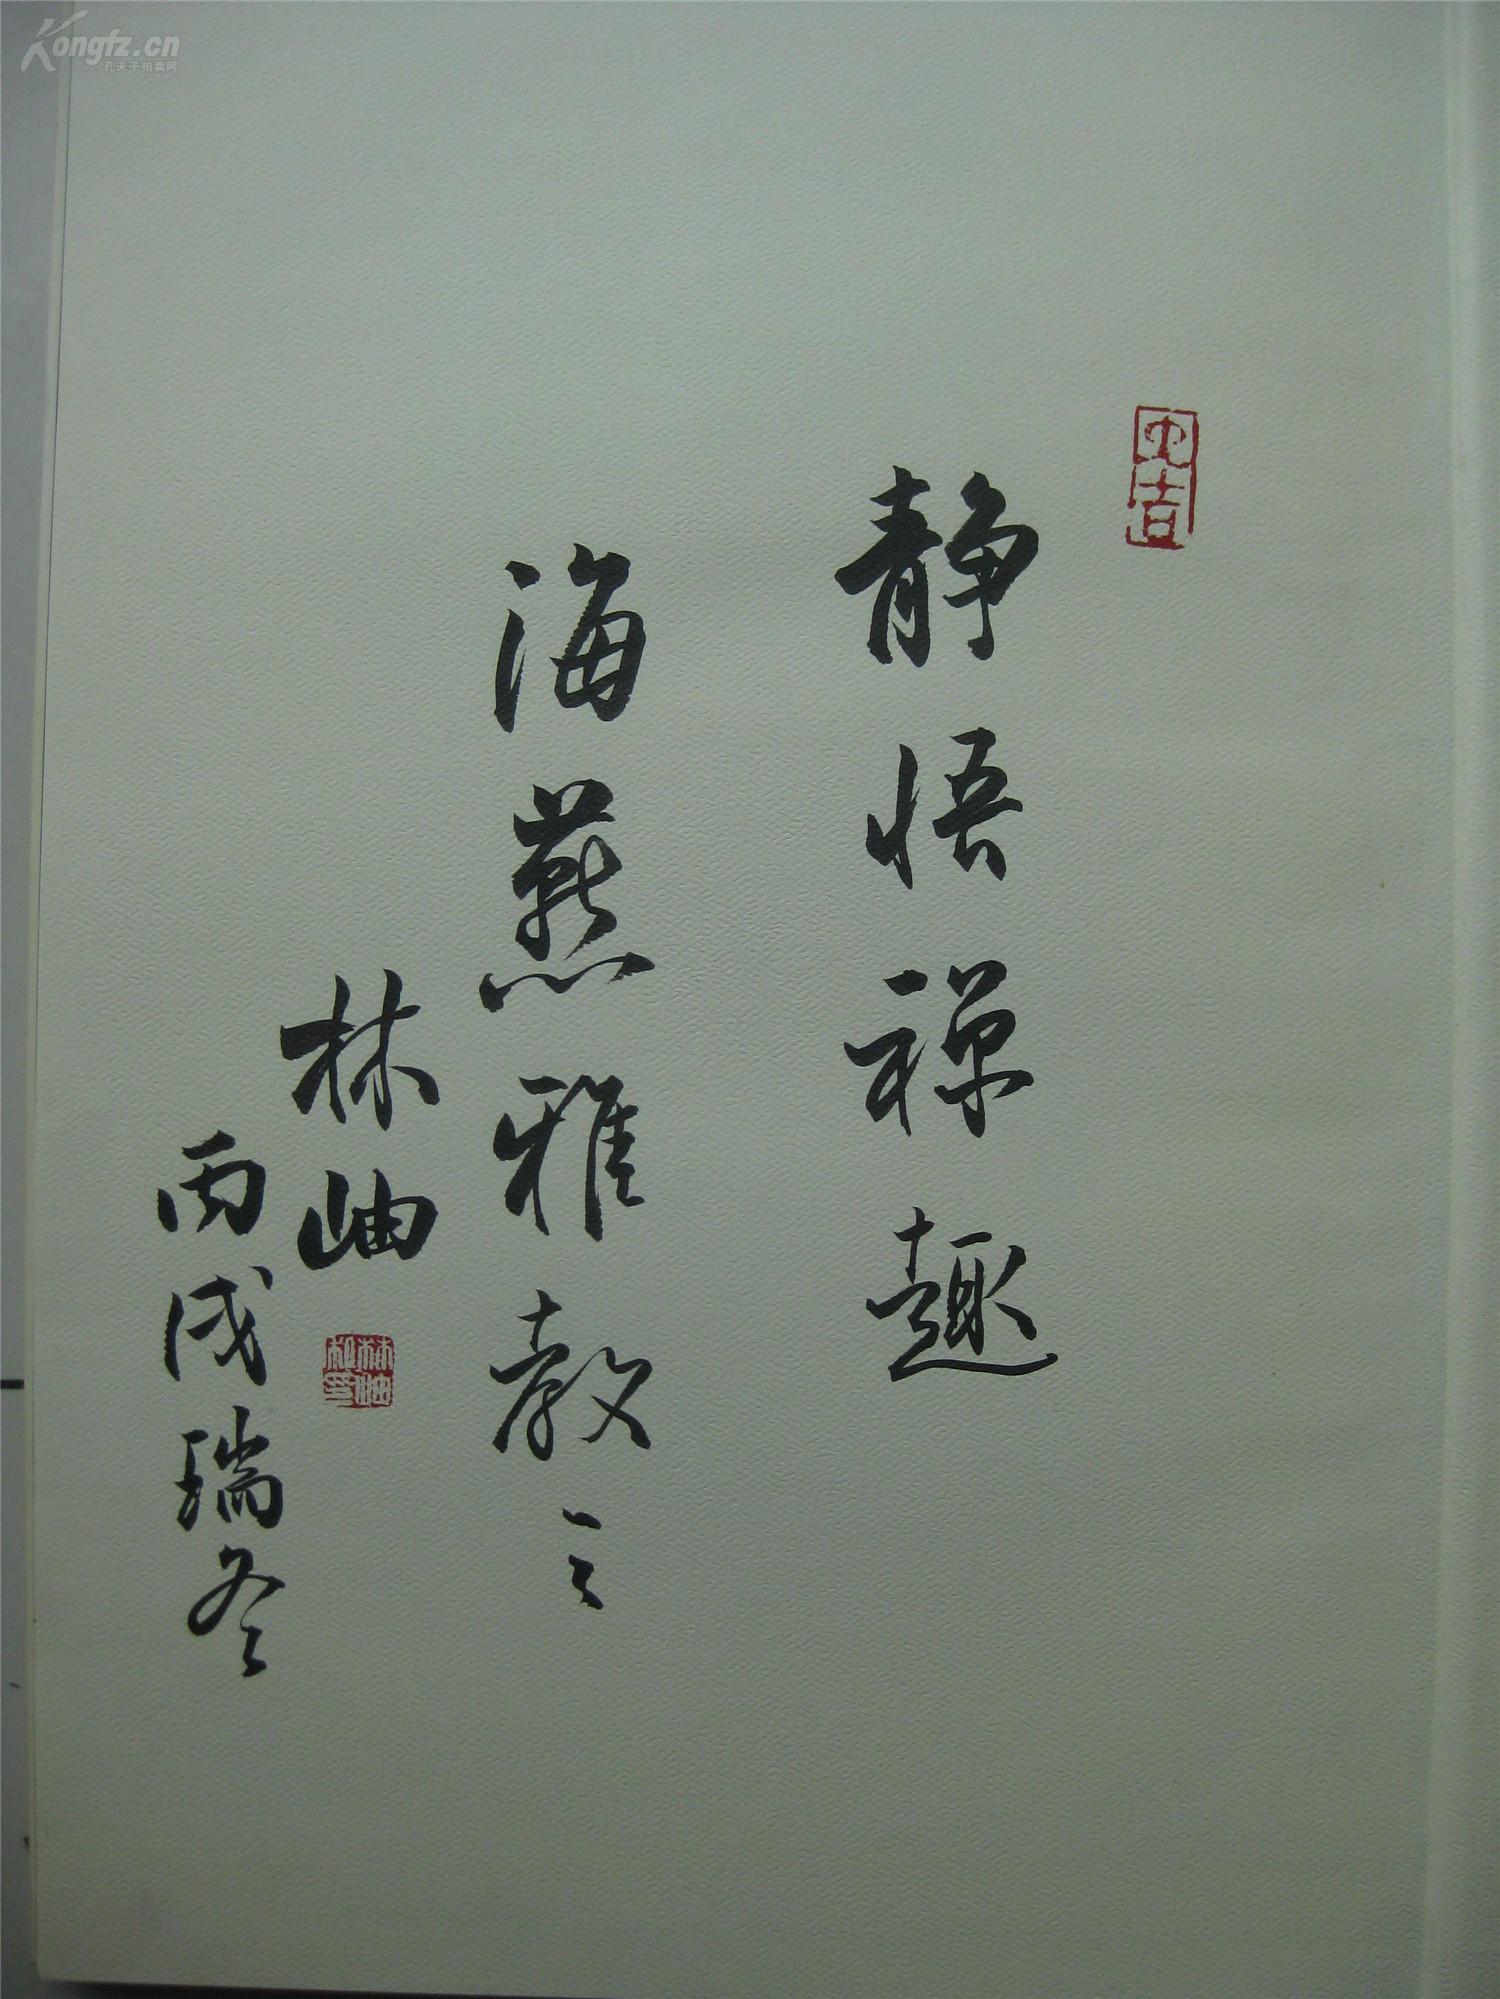 静悟禅趣
海燕雅教之
林岫
丙戌瑞冬
大吉
林岫
Kongfz.cn
孔夫子拍卖网